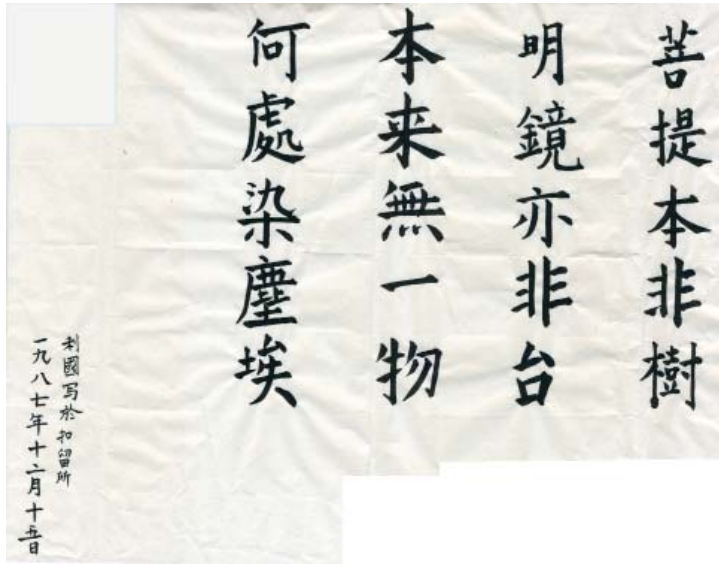 菩提本非樹
明鏡亦非台
本来無一物
何處染塵埃
利國写於扣留所
一九八七年十二月十五日